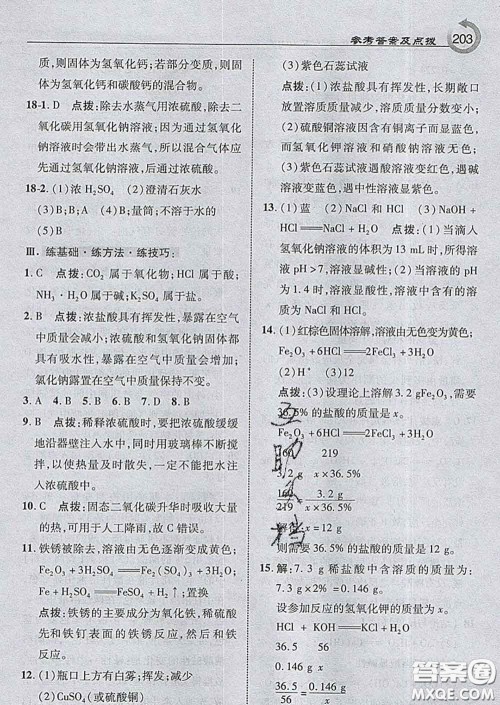 参考答案及点拨 203
则固体为氢氧化钙;若部分变质,
则固体为氢氧化钙和碳酸钙的混合物。
18-1. D 点拨:除去水蒸气用浓硫酸,除去二
氧化碳用氢氧化钠溶液;因为通过氢氧化钠
溶液时会带出水蒸气,所以混合气体应
先通过氢氧化钠溶液,后通过浓硫酸。
18-2. (1)浓 H₂SO₄ (2)澄清石灰水
(3)B (4)B;量筒;不溶于水的
(5)B
Ⅲ. 练基础·练方法·练技巧:
1. C 点拨:CO₂ 属于氧化物;HCl 属于酸;
NH₃·H₂O 属于碱;K₂SO₄ 属于盐。
2. B 点拨:浓盐酸具有挥发性,暴露在空气
中质量会减小;浓硫酸和氢氧化钠固体都
具有吸水性,暴露在空气中质量会增加;
氯化钠暴露在空气中质量保持不变。
3. A 4. D 5. A 6. D 7. B 8. B
9. B 点拨:稀释浓硫酸时,要把浓硫酸缓缓
地沿器壁注入水中,同时用玻璃棒不断搅
动,以使热量及时散失,一定不能把水注入
浓硫酸中。
10. C 点拨:固态二氧化碳升华时吸收大量
的热,可用于人工降雨,故 C 错误。
11. 铁锈被除去,溶液由无色逐渐变成黄色;
Fe₂O₃+3H₂SO₄══Fe₂(SO₄)₃+3H₂O;
Fe+H₂SO₄══FeSO₄+H₂↑;置换
点拨:铁锈的主要成分为氧化铁,稀硫酸
先和铁钉表面的铁锈反应,再和铁反应。
12. (1)瓶口上方有白雾;挥发;减少
(2)CuSO₄(或硫酸铜)
(3)紫色石蕊试液
点拨:(1)浓盐酸具有挥发性,长期敞口
放置溶质质量减少,溶质质量分数变小;
(2)硫酸铜溶液因含有铜离子而显蓝色,
而氢氧化钾溶液和硝酸钠溶液无色;
(3)紫色石蕊试液遇酸溶液变红色,遇碱
溶液变蓝色,遇中性溶液显紫色。
13. (1)蓝 (2)NaCl 和 HCl (3)NaOH +
HCl══NaCl+H₂O 点拨:(1)当滴入
氢氧化钠溶液的体积为 13 mL 时,所得溶
液的 pH>7,溶液显碱性;(2)当溶液的 pH
为 1.4 时,盐酸过量,所得溶液中的溶质
为 NaCl 和 HCl。
14. (1)红棕色固体溶解,溶液由无色变为黄色;
Fe₂O₃+6HCl══2FeCl₃+3H₂O
(2)H⁺
点拨:(3)设理论上溶解 3.2 gFe₂O₃,需要
36.5%的盐酸的质量是 x。
Fe₂O₃+6HCl══2FeCl₃+3H₂O
160 219
3.2 g x×36.5%
160/3.2 g=219/(x×36.5%)
x=12 g
则需要 36.5%的盐酸的质量是 12 g。
15. 解:7.3 g 稀盐酸中含溶质的质量为:
7.3 g×2%=0.146 g
设参加反应的氢氧化钾的质量为 x。
HCl + KOH══KCl + H₂O
36.5 56
0.146 g x
36.5/56=0.146 g/x
互助文档
答案圈
MXQE.COM